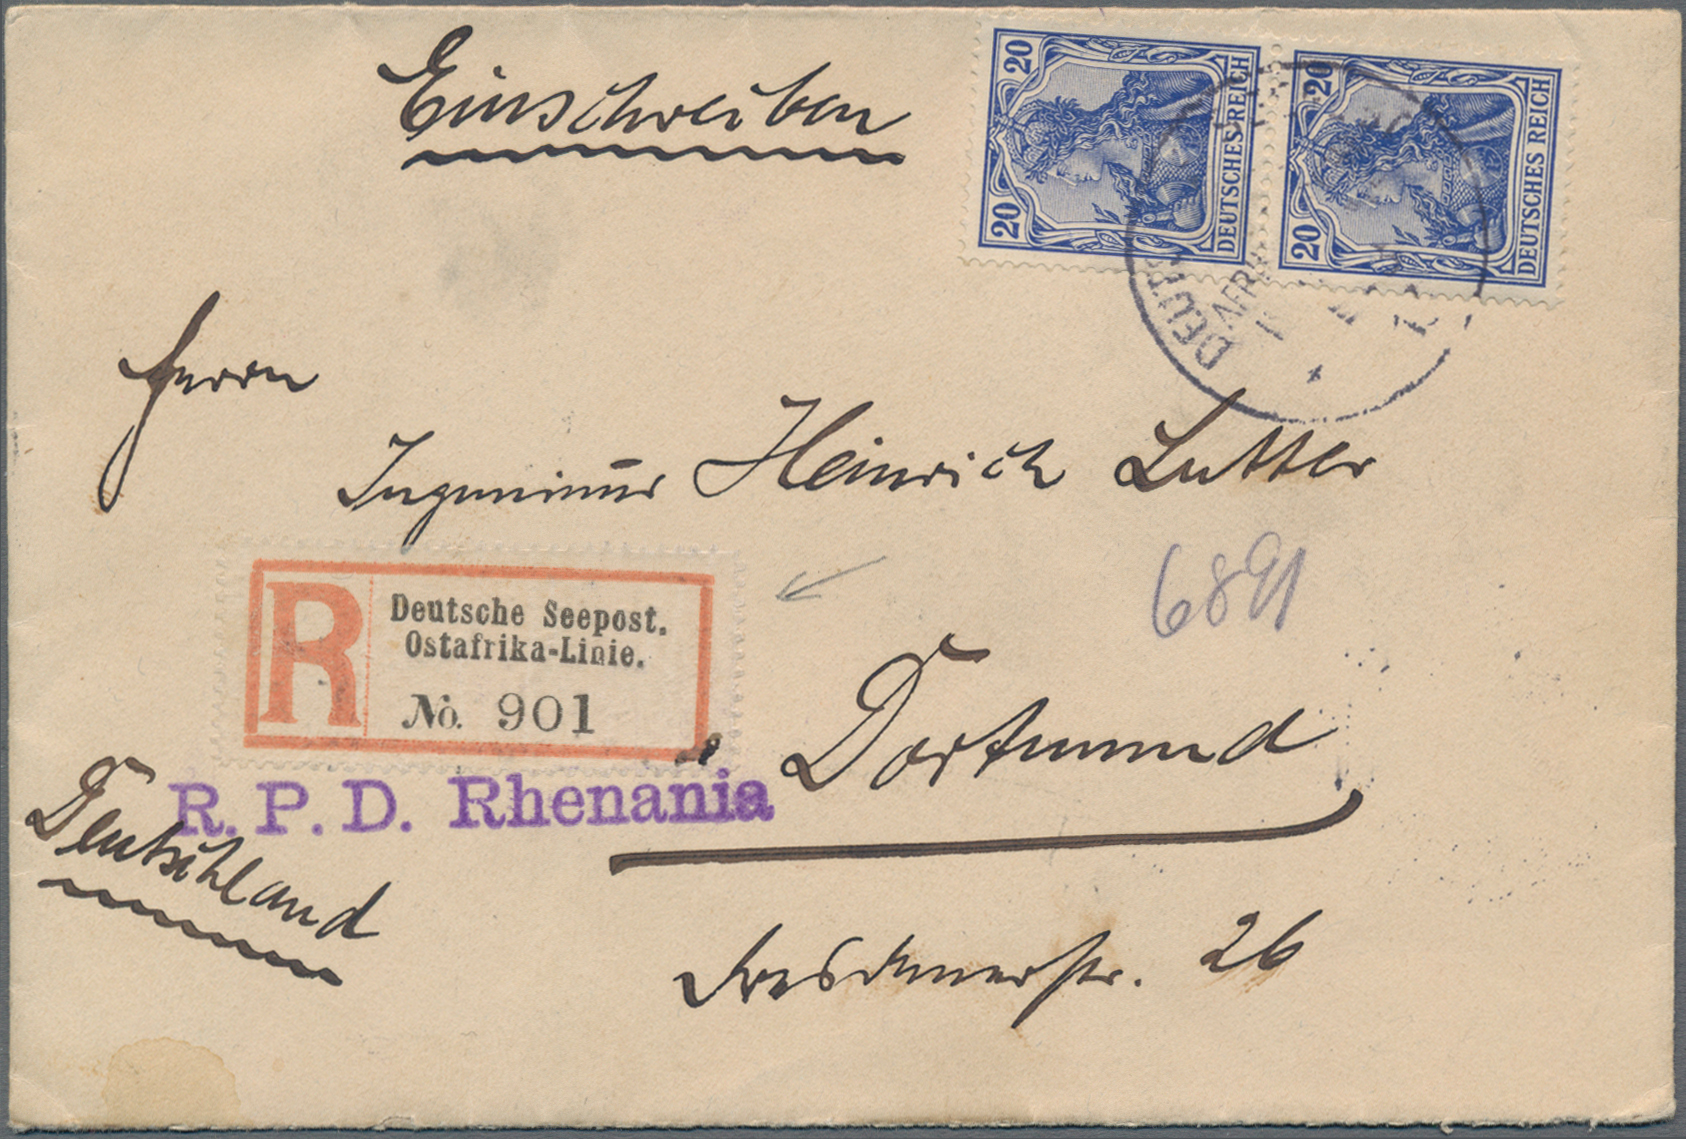 Einschreiben
20 20 DEUTSCHES REICH
20 20 DEUTSCHES REICH
Herrn
Ingenieur Heinrich Lutter
6891
R Deutsche Seepost.
Ostafrika-Linie.
No. 901
Dortmund
R.P.D. Rhenania
Deutschland
Dresdenerstr. 26